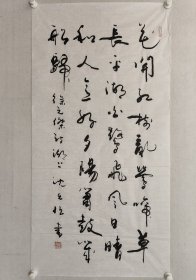 花開紅樹亂鶯啼草
長平湖白鷺飛風日晴
和人意好夕陽簫鼓幾
船歸 徐元傑詩湖上 沈
書